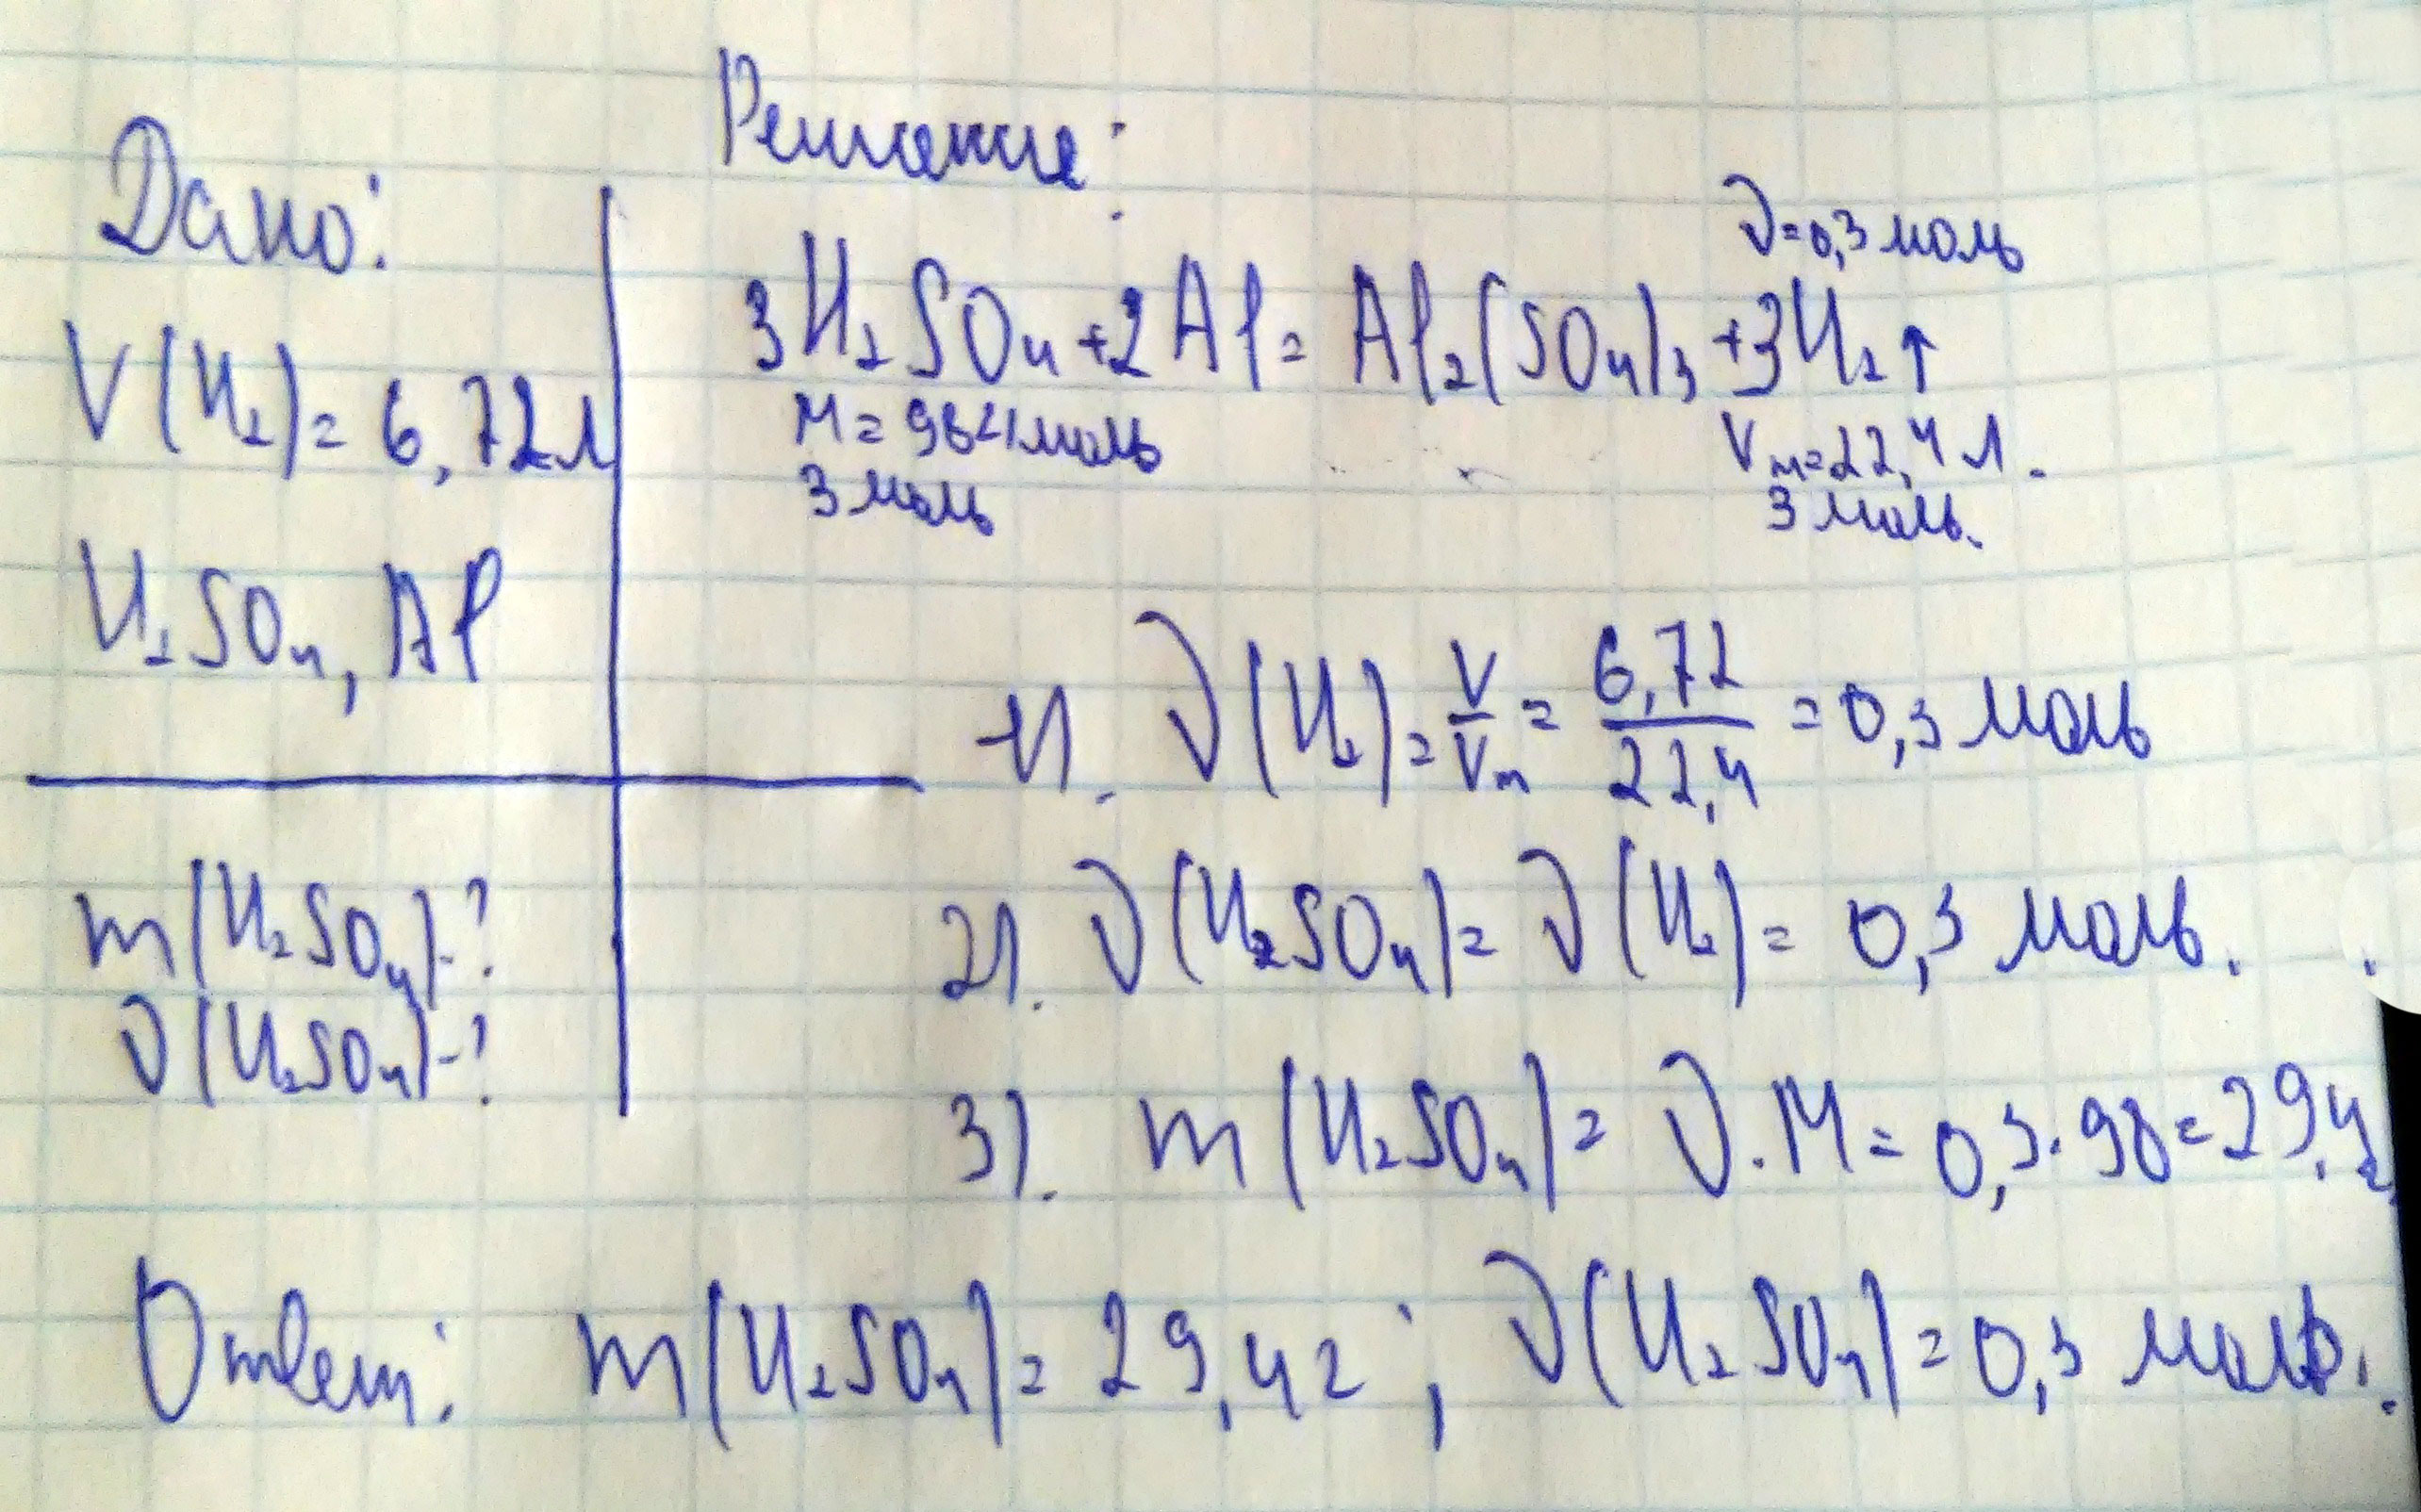 Дано:
V(H₂)= 6,72л
H₂SO₄, Al
m(H₂SO₄)-?
ν(H₂SO₄)-?
Решение:
ν=0,3 моль
3H₂SO₄+2Al= Al₂(SO₄)₃+3H₂↑
M=98г/моль
Vm=22,4 л.
3 моль
3 моль.
1). ν(H₂)= V/Vm = 6,72/22,4 = 0,3 моль
2). ν(H₂SO₄)= ν(H₂)= 0,3 моль.
3). m(H₂SO₄)= ν·M= 0,3·98=29,4г
Ответ: m(H₂SO₄)= 29,4г; ν(H₂SO₄)=0,3 моль.